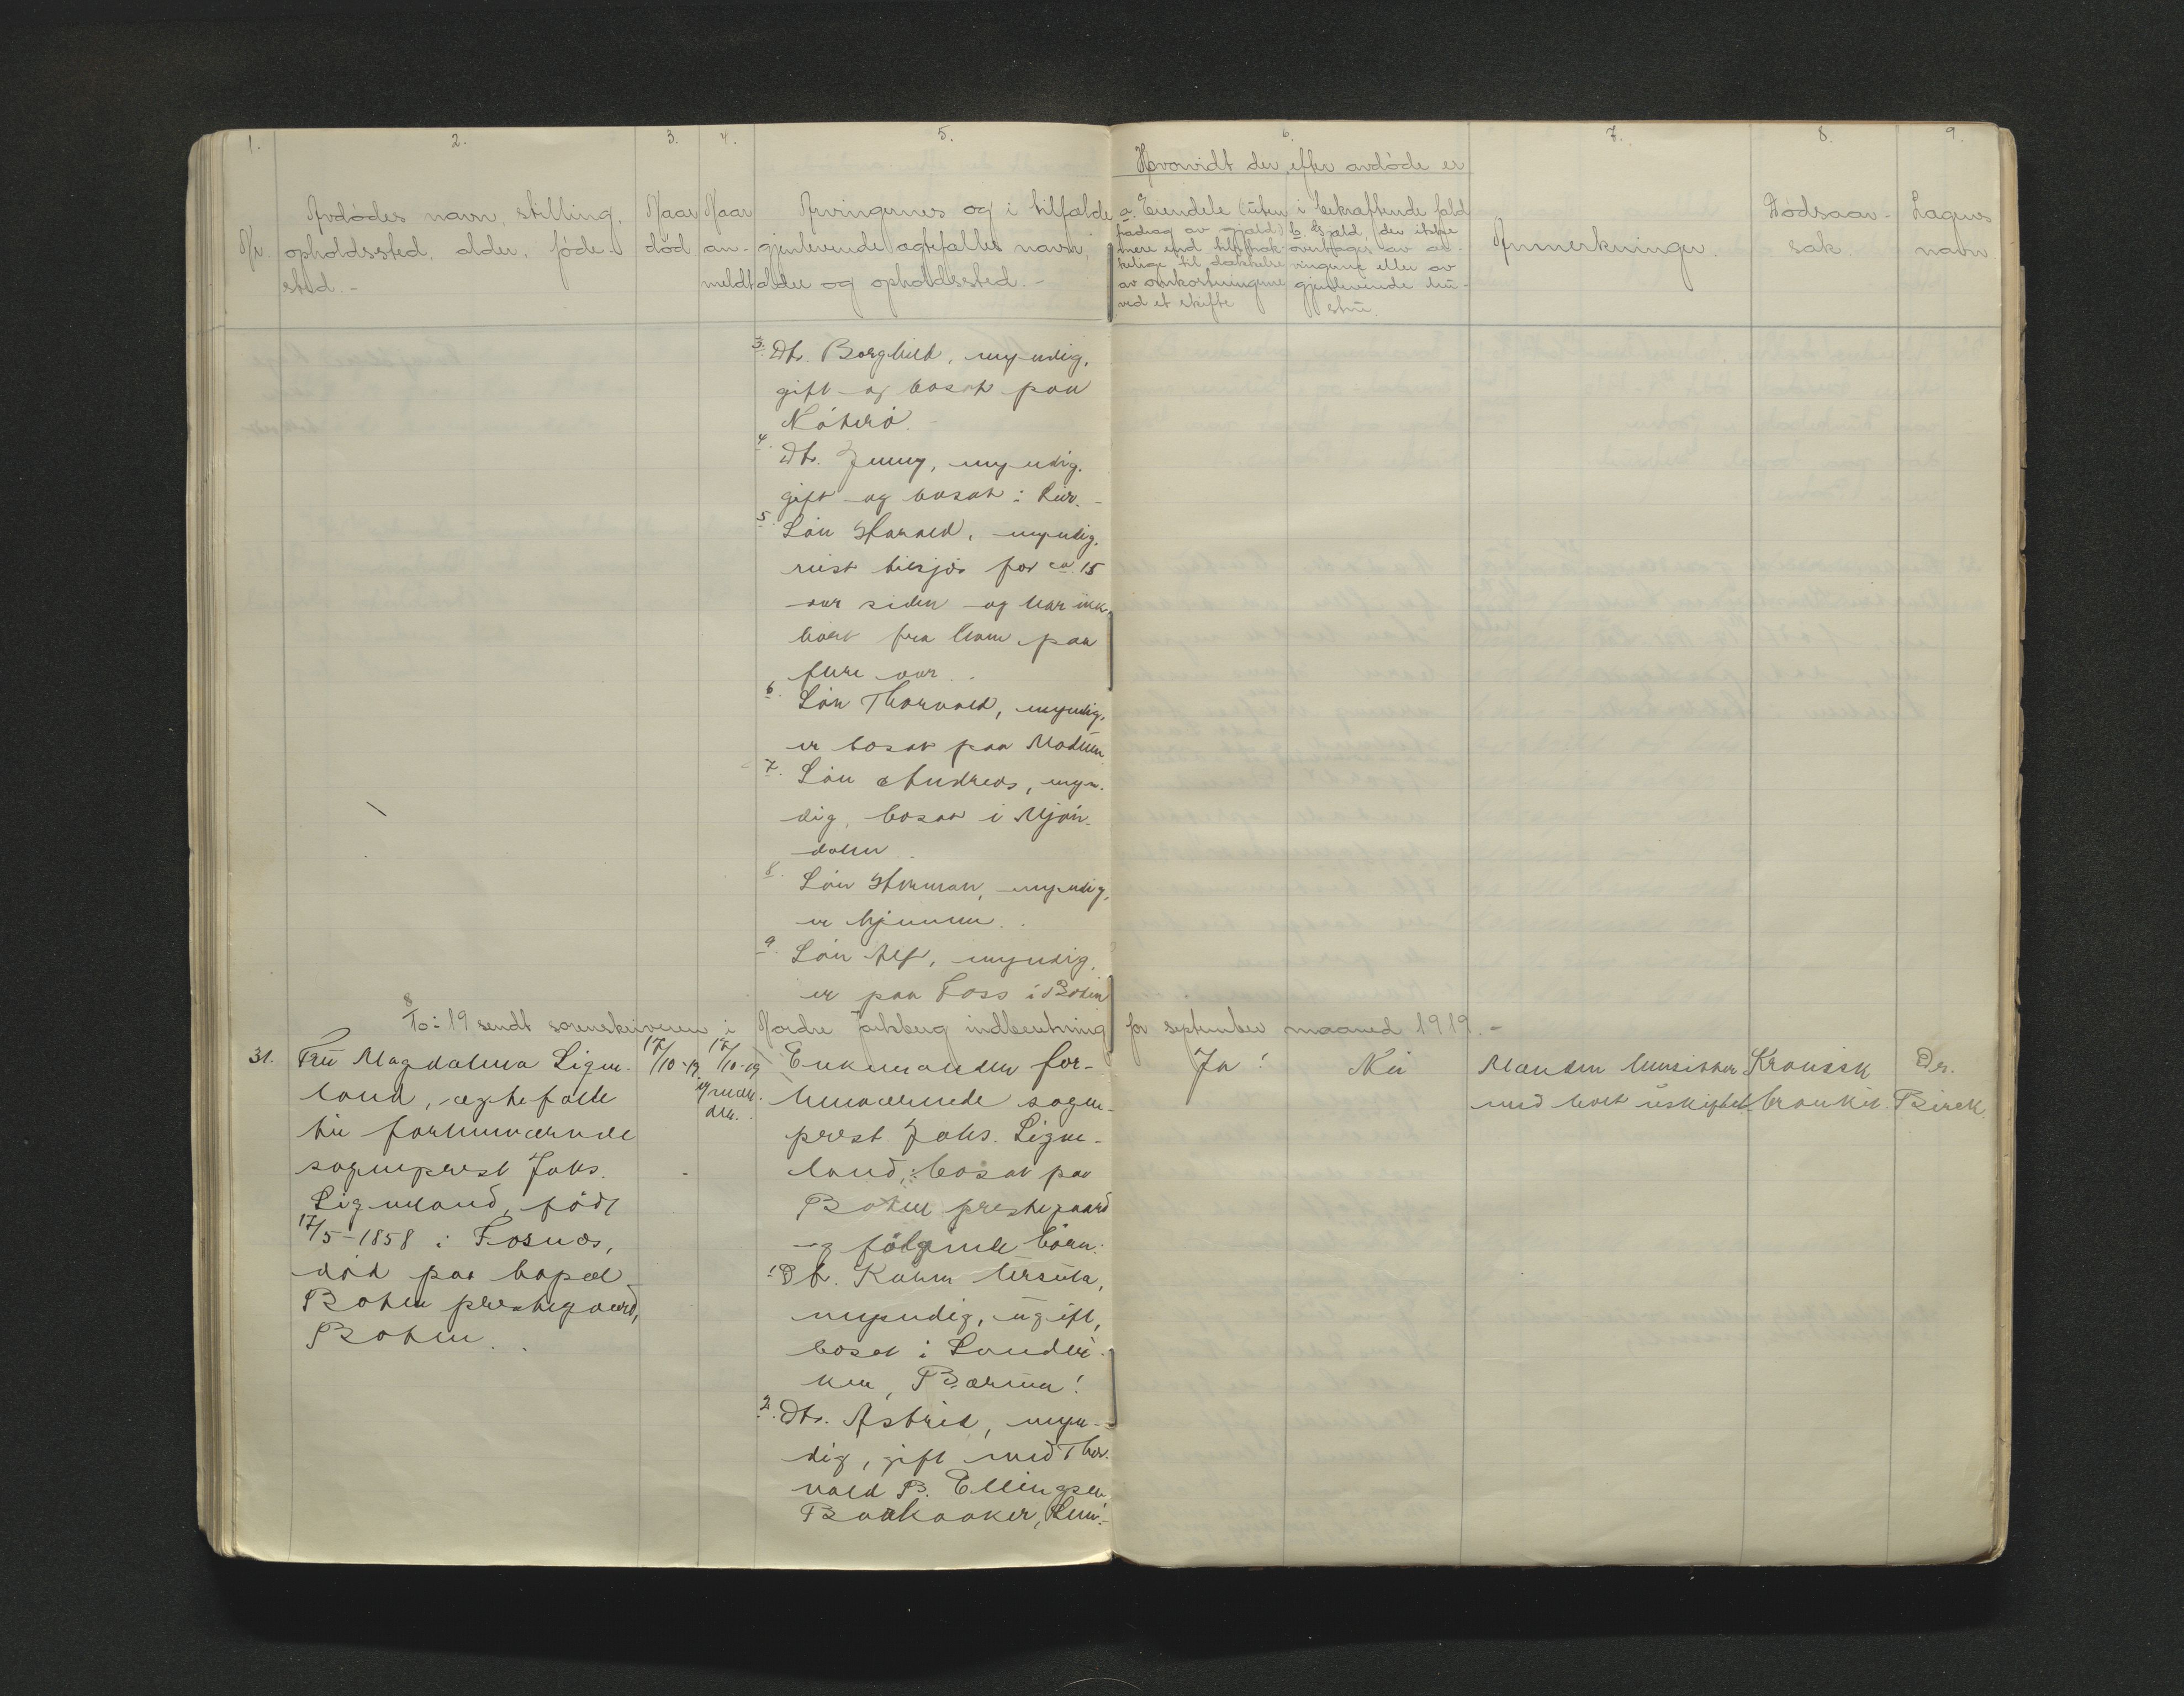 1.
2.
3.
4.
5.
6.
7.
8.
9.
Nr.
Avdødes navn, stilling,
opholdssted, alder, føde-
sted.-
Naar
død
Naar
an-
meldt
Arvingernes og i tilfælde
gjenlevende ægtefælles navn,
alder og opholdssted.-
Hvorvidt der efter avdøde er
a. Eiendele (uten
fradrag av gjæld)
mere end tilstræk-
kelige til dækkelse
av omkostningerne
ved et skifte
i bekræftende fald
b. Gjæld, der ikke
overtages av ar-
vingerne eller av
gjenlevende hu-
stru.
Anmerkninger.
Dødsaar-
sak.
Lægens
navn.
3. Dtr. Borghild, myndig,
gift og bosat paa
Nøterø.
4. Dtr. Jenny, myndig,
gift og bosat i Lier.-
5. Søn Harald, myndig,
reist tilsjøs for ca. 15
aar siden og har ikke
hørt fra ham paa
flere aar.
6. Søn Thorvald, myndig,
er bosat paa Modum.
7. Søn Andreas, myn-
dig, bosat i Mjøn-
dalen.
8. Søn Herman, myndig,
er hjemme.
9. Søn Alf, myndig,
er paa Foss i Botne
8/10-19 sendt sorenskriveren i Nordre Jarlsberg indberetning for september maaned 1919.-
31.
Fru Magdalena Ligne-
land, ægtefælle
til forhenværende
sogneprest Johs.
Ligneland, född
17/5-1858 i Fosnæs,
död paa bopæl
Botne prestegaard,
Botne.
17/10-19.
17/10-19
av manden.
Enkemanden for-
henværende sogne-
prest Johs. Ligne-
land, bosat paa
Botne prestegaard
og følgende børn:
1. Dtr. Karen Ursula,
myndig, ugift,
bosat i Sandvi-
ken, Bærum!
2. Dtr. Astrid, myn-
dig, gift med Thor-
vald B. Ellingsen,
Barkaaker, Sem.-
Ja!
Nei
Manden hensitter
med boet uskiftet.
Kronisk
bronkit.
Dr.
Birck.